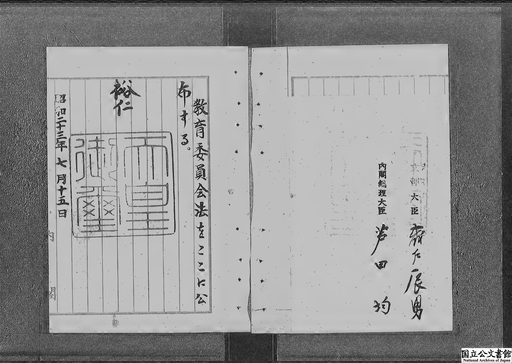 文部大臣 森戸辰男
内閣総理大臣 芦田均
教育委員会法をここに公
布する。
裕仁
天皇御璽
昭和二十三年七月十五日
内閣
国立公文書館
National Archives of Japan